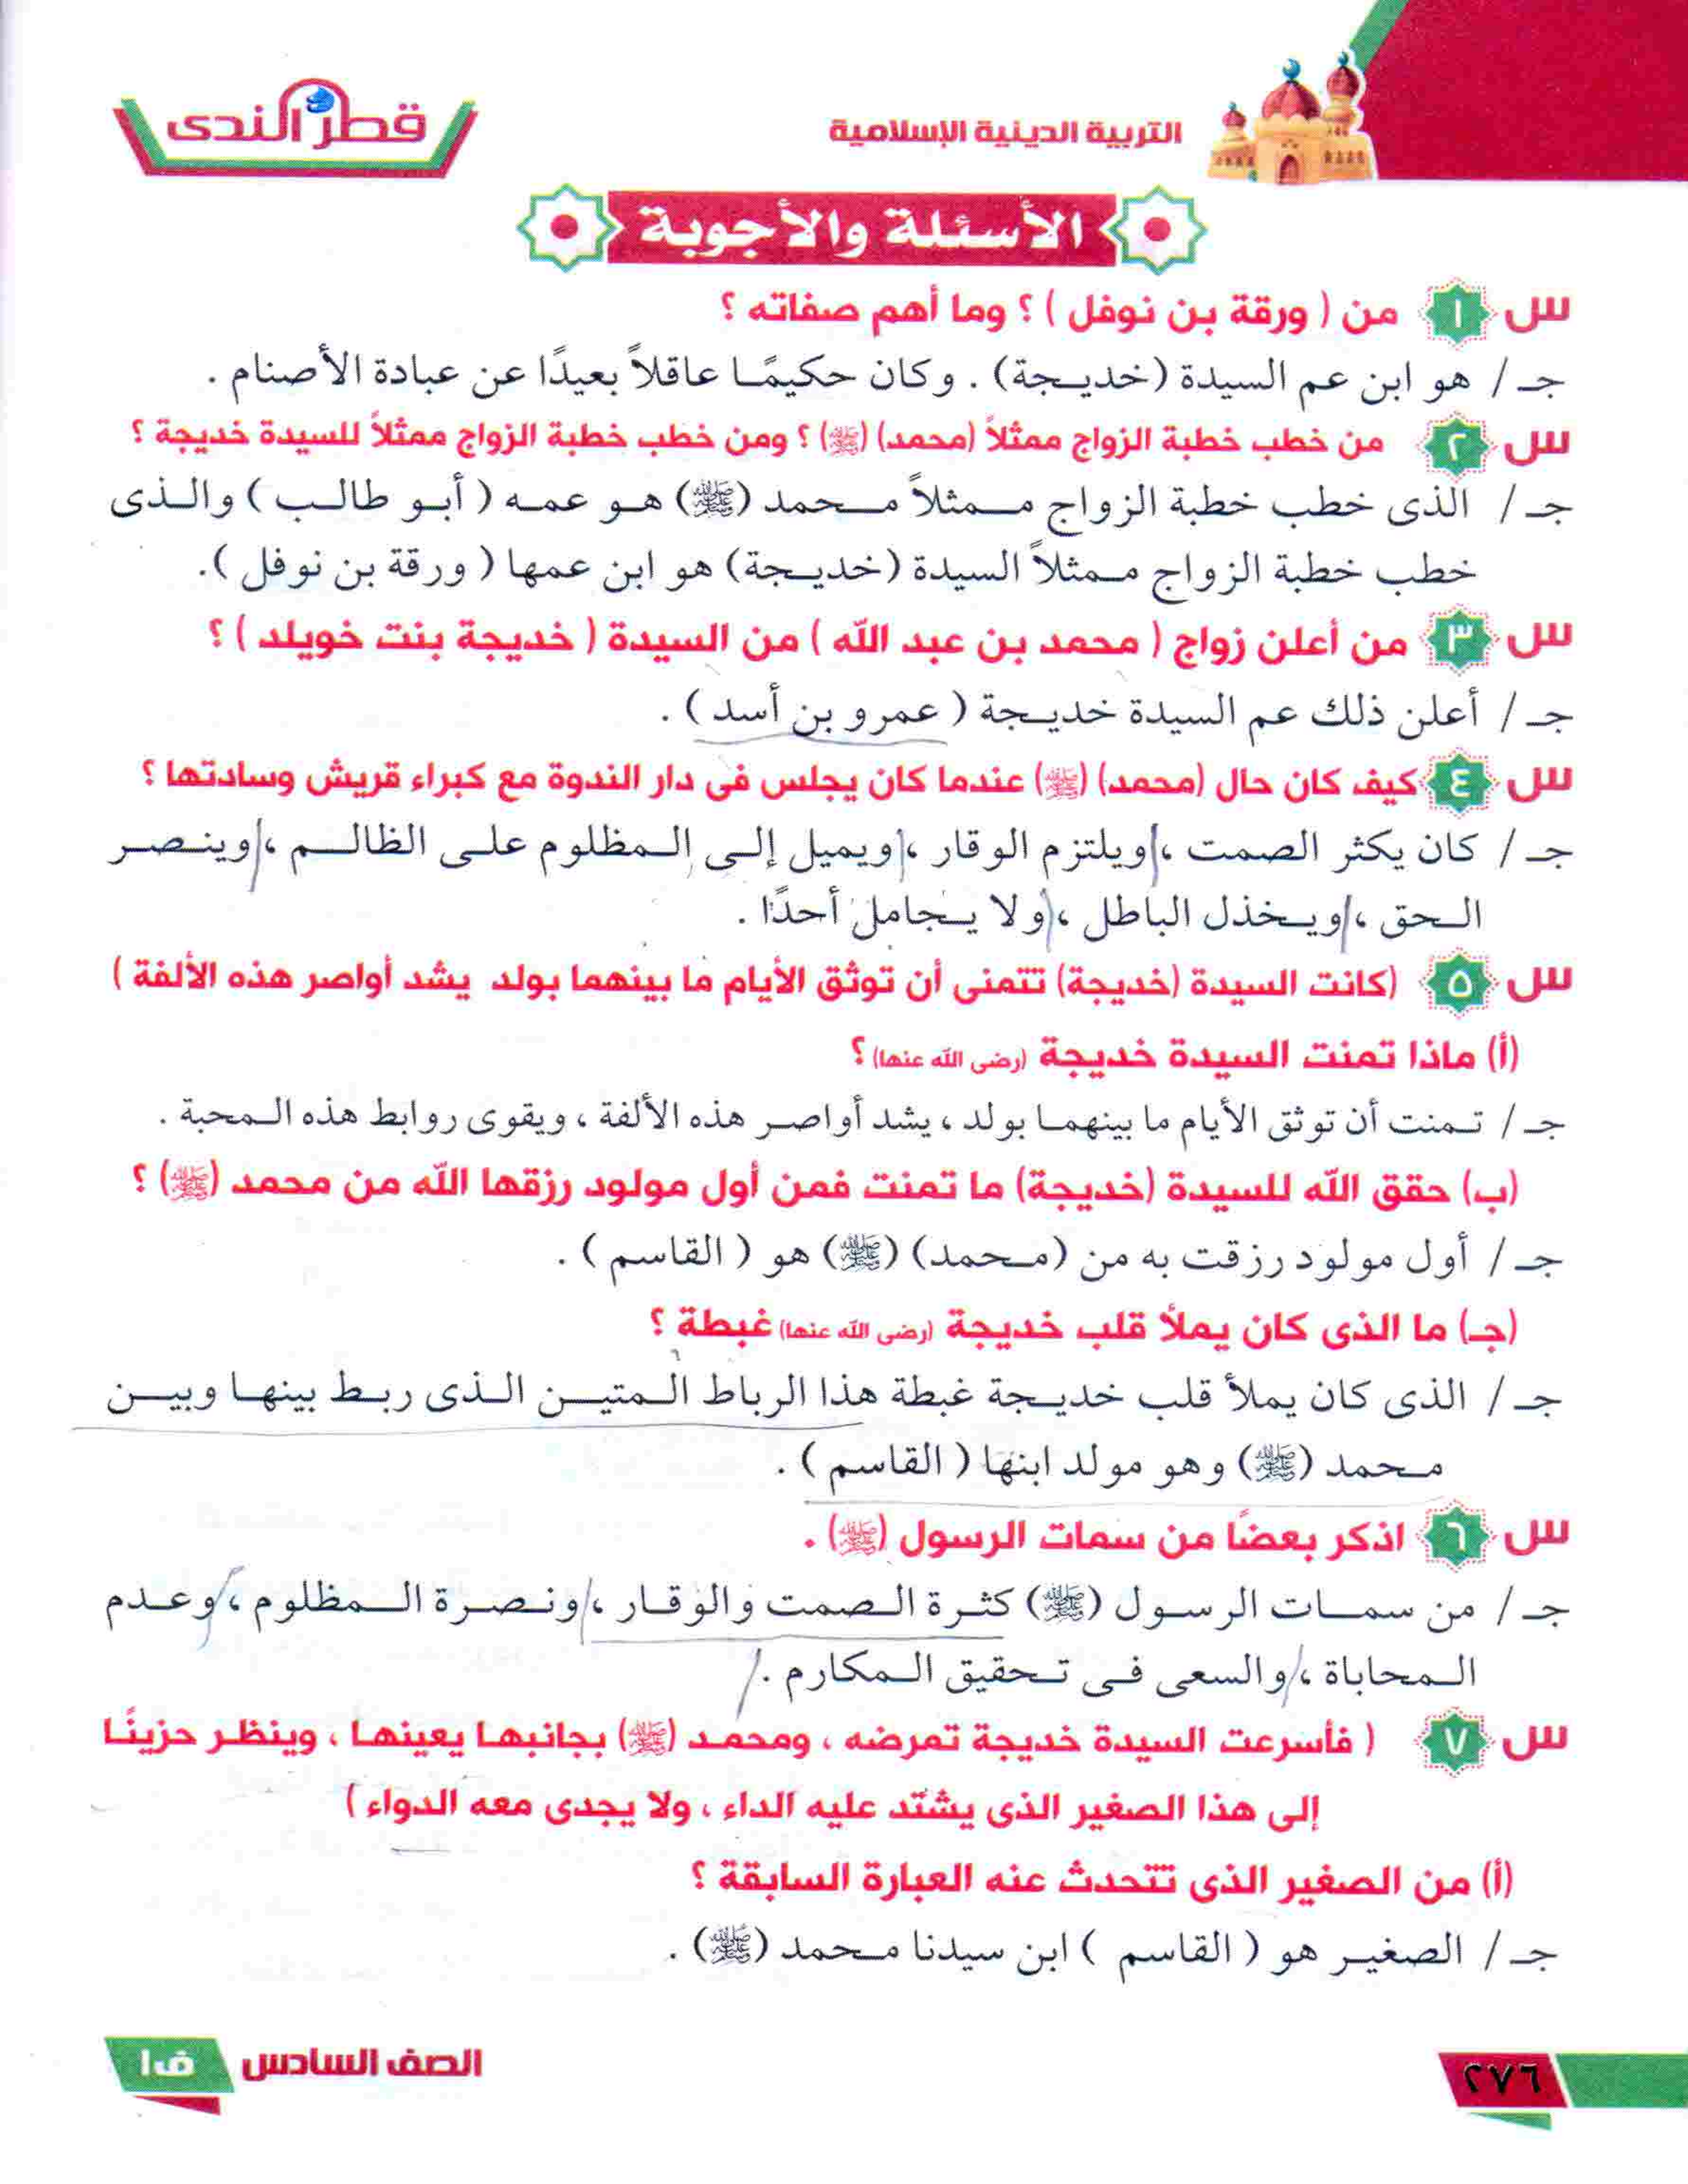 التربية الدينية الإسلامية
قطر الندى
الأسئلة والأجوبة
س ١ من ( ورقة بن نوفل ) ؟ وما أهم صفاته ؟
جـ / هو ابن عم السيدة (خديجة) . وكان حكيمًا عاقلاً بعيدًا عن عبادة الأصنام .
س ٢ من خطب خطبة الزواج ممثلاً (محمد) (ﷺ) ؟ ومن خطب خطبة الزواج ممثلاً للسيدة خديجة ؟
جـ / الذى خطب خطبة الزواج ممثلاً محمد (ﷺ) هو عمه ( أبو طالب ) والذى
خطب خطبة الزواج ممثلاً السيدة (خديجة) هو ابن عمها ( ورقة بن نوفل ).
س ٣ من أعلن زواج ( محمد بن عبد الله ) من السيدة ( خديجة بنت خويلد ) ؟
جـ / أعلن ذلك عم السيدة خديجة ( عمرو بن أسد ) .
س ٤ كيف كان حال (محمد) (ﷺ) عندما كان يجلس فى دار الندوة مع كبراء قريش وسادتها ؟
جـ / كان يكثر الصمت ، ويلتزم الوقار ، ويميل إلى المظلوم على الظالم ، وينصر
الحق ، ويخذل الباطل ، ولا يجامل أحدًا .
س ٥ (كانت السيدة (خديجة) تتمنى أن توثق الأيام ما بينهما بولد يشد أواصر هذه الألفة )
(أ) ماذا تمنت السيدة خديجة (رضى الله عنها) ؟
جـ / تمنت أن توثق الأيام ما بينهما بولد ، يشد أواصر هذه الألفة ، ويقوى روابط هذه المحبة .
(ب) حقق الله للسيدة (خديجة) ما تمنت فمن أول مولود رزقها الله من محمد (ﷺ) ؟
جـ / أول مولود رزقت به من (محمد) (ﷺ) هو ( القاسم ) .
(جـ) ما الذى كان يملأ قلب خديجة (رضى الله عنها) غبطة ؟
جـ / الذى كان يملأ قلب خديجة غبطة هذا الرباط المتين الذى ربط بينها وبين
محمد (ﷺ) وهو مولد ابنها ( القاسم ) .
س ٦ اذكر بعضًا من سمات الرسول (ﷺ) .
جـ / من سمات الرسول (ﷺ) كثرة الصمت والوقار ، ونصرة المظلوم ، وعدم
المحاباة ، والسعى فى تحقيق المكارم .
س ٧ ( فأسرعت السيدة خديجة تمرضه ، ومحمد (ﷺ) بجانبها يعينها ، وينظر حزينًا
إلى هذا الصغير الذى يشتد عليه الداء ، ولا يجدى معه الدواء )
(أ) من الصغير الذى تتحدث عنه العبارة السابقة ؟
جـ / الصغير هو ( القاسم ) ابن سيدنا محمد (ﷺ) .
٢٧٦
الصف السادس ف١